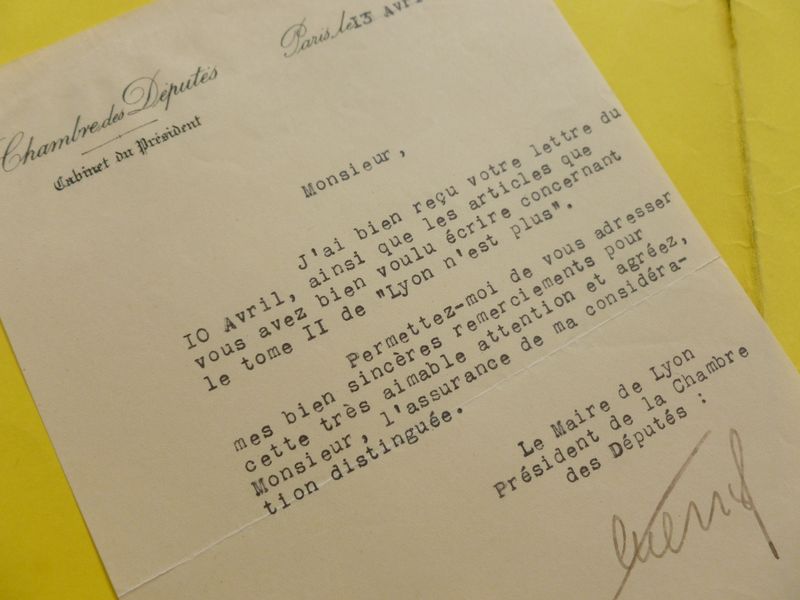 Chambre des Députés
Cabinet du Président
Paris, le 13 Avri
Monsieur,
J'ai bien reçu votre lettre du
IO Avril, ainsi que les articles que
vous avez bien voulu écrire concernant
le tome II de "Lyon n'est plus".
Permettez-moi de vous adresser
mes bien sincères remerciements pour
cette très aimable attention et agréez,
Monsieur, l'assurance de ma considéra-
tion distinguée.
Le Maire de Lyon
Président de la Chambre
des Députés :